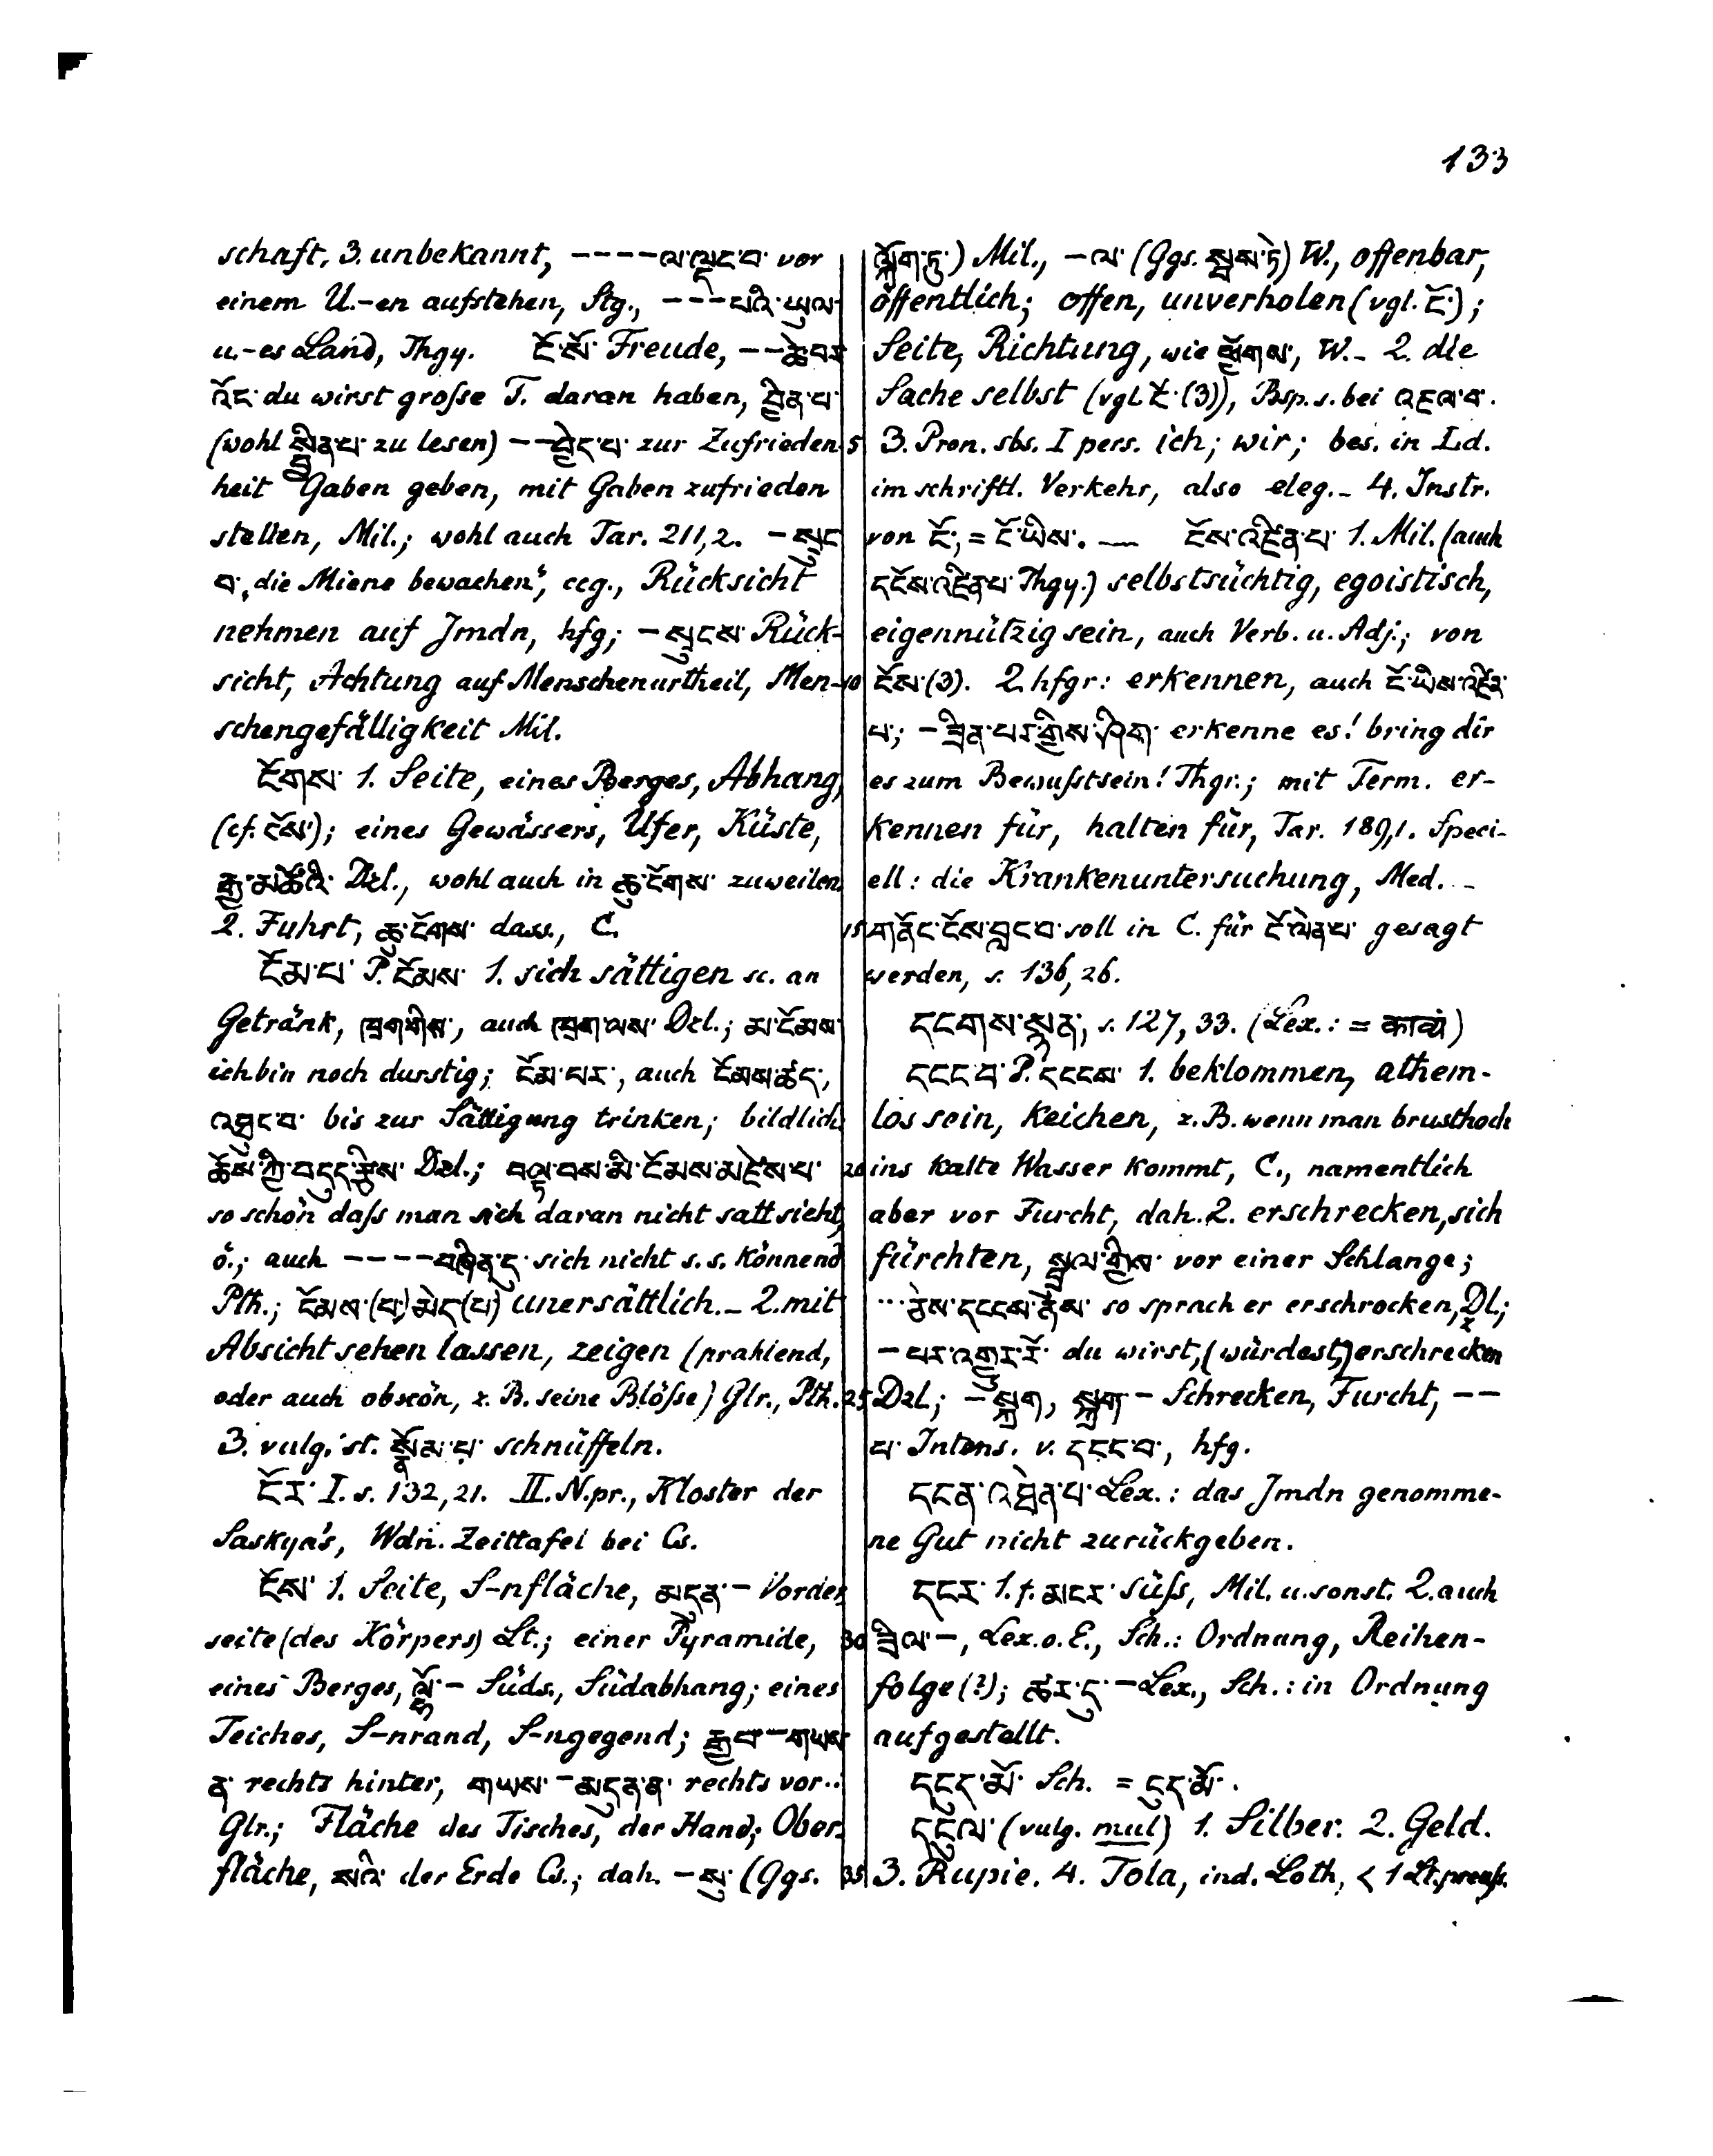 133
schaft, 3. unbekannt, ----ལ་ལྡང་བ་ vor
einem U.-en aufstehen, Stg., ---པའི་ཡུལ་
u.-es Land, Thgy. ངོ་སོ་ Freude, --ཆེ་བར་
འོང་ du wirst grosse F. daran haben, བྱིན་པ་
(wohl སྦྱིན་པ་ zu lesen) --བྱེད་པ་ zur Zufrieden-
heit Gaben geben, mit Gaben zufrieden
stellen, Mil.; wohl auch Tar. 211,2. -སུང་
བ་ „die Miene bewachen", ccg., Rücksicht
nehmen auf Jmdn, hfg; -སུངས་ Rück-
sicht, Achtung auf Menschenurtheil, Men-
schengefälligkeit Mil.
ངོགས་ 1. Seite, eines Berges, Abhang,
(cf. ངོས་); eines Gewässers, Ufer, Küste,
རྒྱ་མཚོའི་ Dzl., wohl auch in ཆུ་ངོགས་ zuweilen
2. Fuhrt, ཆུ་ངོགས་ dass., C.
ངོམ་པ་ P. ངོམས་ 1. sich sättigen sc. an
Getränk, ཁྲག་གིས་, auch ཁྲག་ལས་ Dzl.; མ་ངོམས་
ich bin noch durstig; ངོམ་པར་, auch ངོམས་ཚད་,
འཐུང་བ་ bis zur Sättigung trinken; bildlich
ཆོས་ཀྱི་བདུད་རྩིས་ Dzl.; བལྟ་བས་མི་ངོམས་མཛེས་པ་
so schön dass man sich daran nicht satt sieht,
ö.; auch ----བཞིན་དུ་ sich nicht s. s. könnend
Pth.; ངོམས་(པ་)མེད་(པ་) unersättlich.- 2. mit
Absicht sehen lassen, zeigen (prahlend,
oder auch obscön, z. B. seine Blösse) Glr., Pth.
3. vulg. st. སྣོམ་པ་ schnüffeln.
ངོར་ I. s. 132,21. II. N.pr., Kloster der
Saskya's, Wdn. Zeittafel bei Cs.
ངོས་ 1. Seite, S-nfläche, མདུན་- Vorder-
seite (des Körpers) Lt.; einer Pyramide,
eines Berges, ལྷོ་- Süds., Südabhang; eines
Teiches, S-nrand, S-ngegend; རྒྱབ་-གཡས་
ན་ rechts hinter, གཡས་-མདུན་ན་ rechts vor..
Glr.; Fläche des Tisches, der Hand; Ober-
fläche, སའི་ der Erde Cs.; dah. -སུ་ (Ggs.
ལྐོག་ཏུ་) Mil., -ལ་ (Ggs. སྦས་ཏེ་) W., offenbar,
öffentlich; offen, unverholen (vgl. ངོ་);
Seite, Richtung, wie ཕྱོགས་, W.- 2. die
Sache selbst (vgl. ངོ་(3)), Bsp. s. bei འཇལ་བ་.
5 3. Pron. sbs. I pers. ich; wir; bes. in Ld.
im schriftl. Verkehr, also eleg.- 4. Instr.
von ངོ་, = ངོ་ཡིས་. — ངོས་འཛིན་པ་ 1. Mil. (auch
དངོས་འཛིན་པ་ Thgy.) selbstsüchtig, egoistisch,
eigennützig sein, auch Verb. u. Adj.; von
10 ངོས་(3). 2 hfgr: erkennen, auch ངོ་ཡིས་འཛིན་
པ་; -ཟིན་པར་གྱིས་ཤིག་ erkenne es! bring dir
es zum Bewusstsein! Thgr.; mit Term. er-
kennen für, halten für, Tar. 189,1. Speci-
ell: die Krankenuntersuchung, Med. -
15 གནོང་ངོས་བླང་བ་ soll in C. für ངོ་ལེན་པ་ gesagt
werden, s. 136,26.
དངགས་སྙན་, s. 127,33. (Lex.: = काव्यं)
དངང་བ་ P. དངངས་ 1. beklommen, athem-
los sein, keichen, z. B. wenn man brusthoch
20 ins kalte Wasser kommt, C., namentlich
aber vor Furcht, dah. 2. erschrecken, sich
fürchten, སྦྲུལ་གྱིས་ vor einer Schlange;
...ཅེས་དངངས་ནས་ so sprach er erschrocken, Dzl.;
-པར་འགྱུར་རོ་ du wirst, (würdest,) erschrecken
25 Dzl.; -སྐྲག, སྐྲག་- Schrecken, Furcht, --
པ་ Intens. v. དངང་བ་, hfg.
དངན་འཐེན་པ་ Lex.: das Jmdn genomme-
ne Gut nicht zurückgeben.
དངར་ 1. f. མངར་ süss, Mil. u. sonst. 2. auch
30 ཟིལ་-, Lex. o. E., Sch.: Ordnung, Reihen-
folge (?); ཚར་དུ་- Lex., Sch.: in Ordnung
aufgestellt.
དངུད་མོ་ Sch. = ངུད་མོ་.
དངུལ་ (vulg. mul) 1. Silber. 2. Geld.
35 3. Rupie. 4. Tola, ind. Loth, < 1 Lt. preuss.